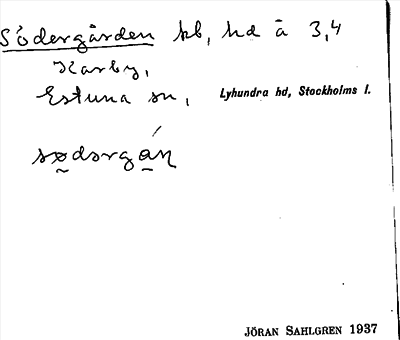 Södergården kb, hd å 3,4
Karby,
Estuna sn, Lyhundra hd, Stockholms l.
sødərgán
JÖRAN SAHLGREN 1937